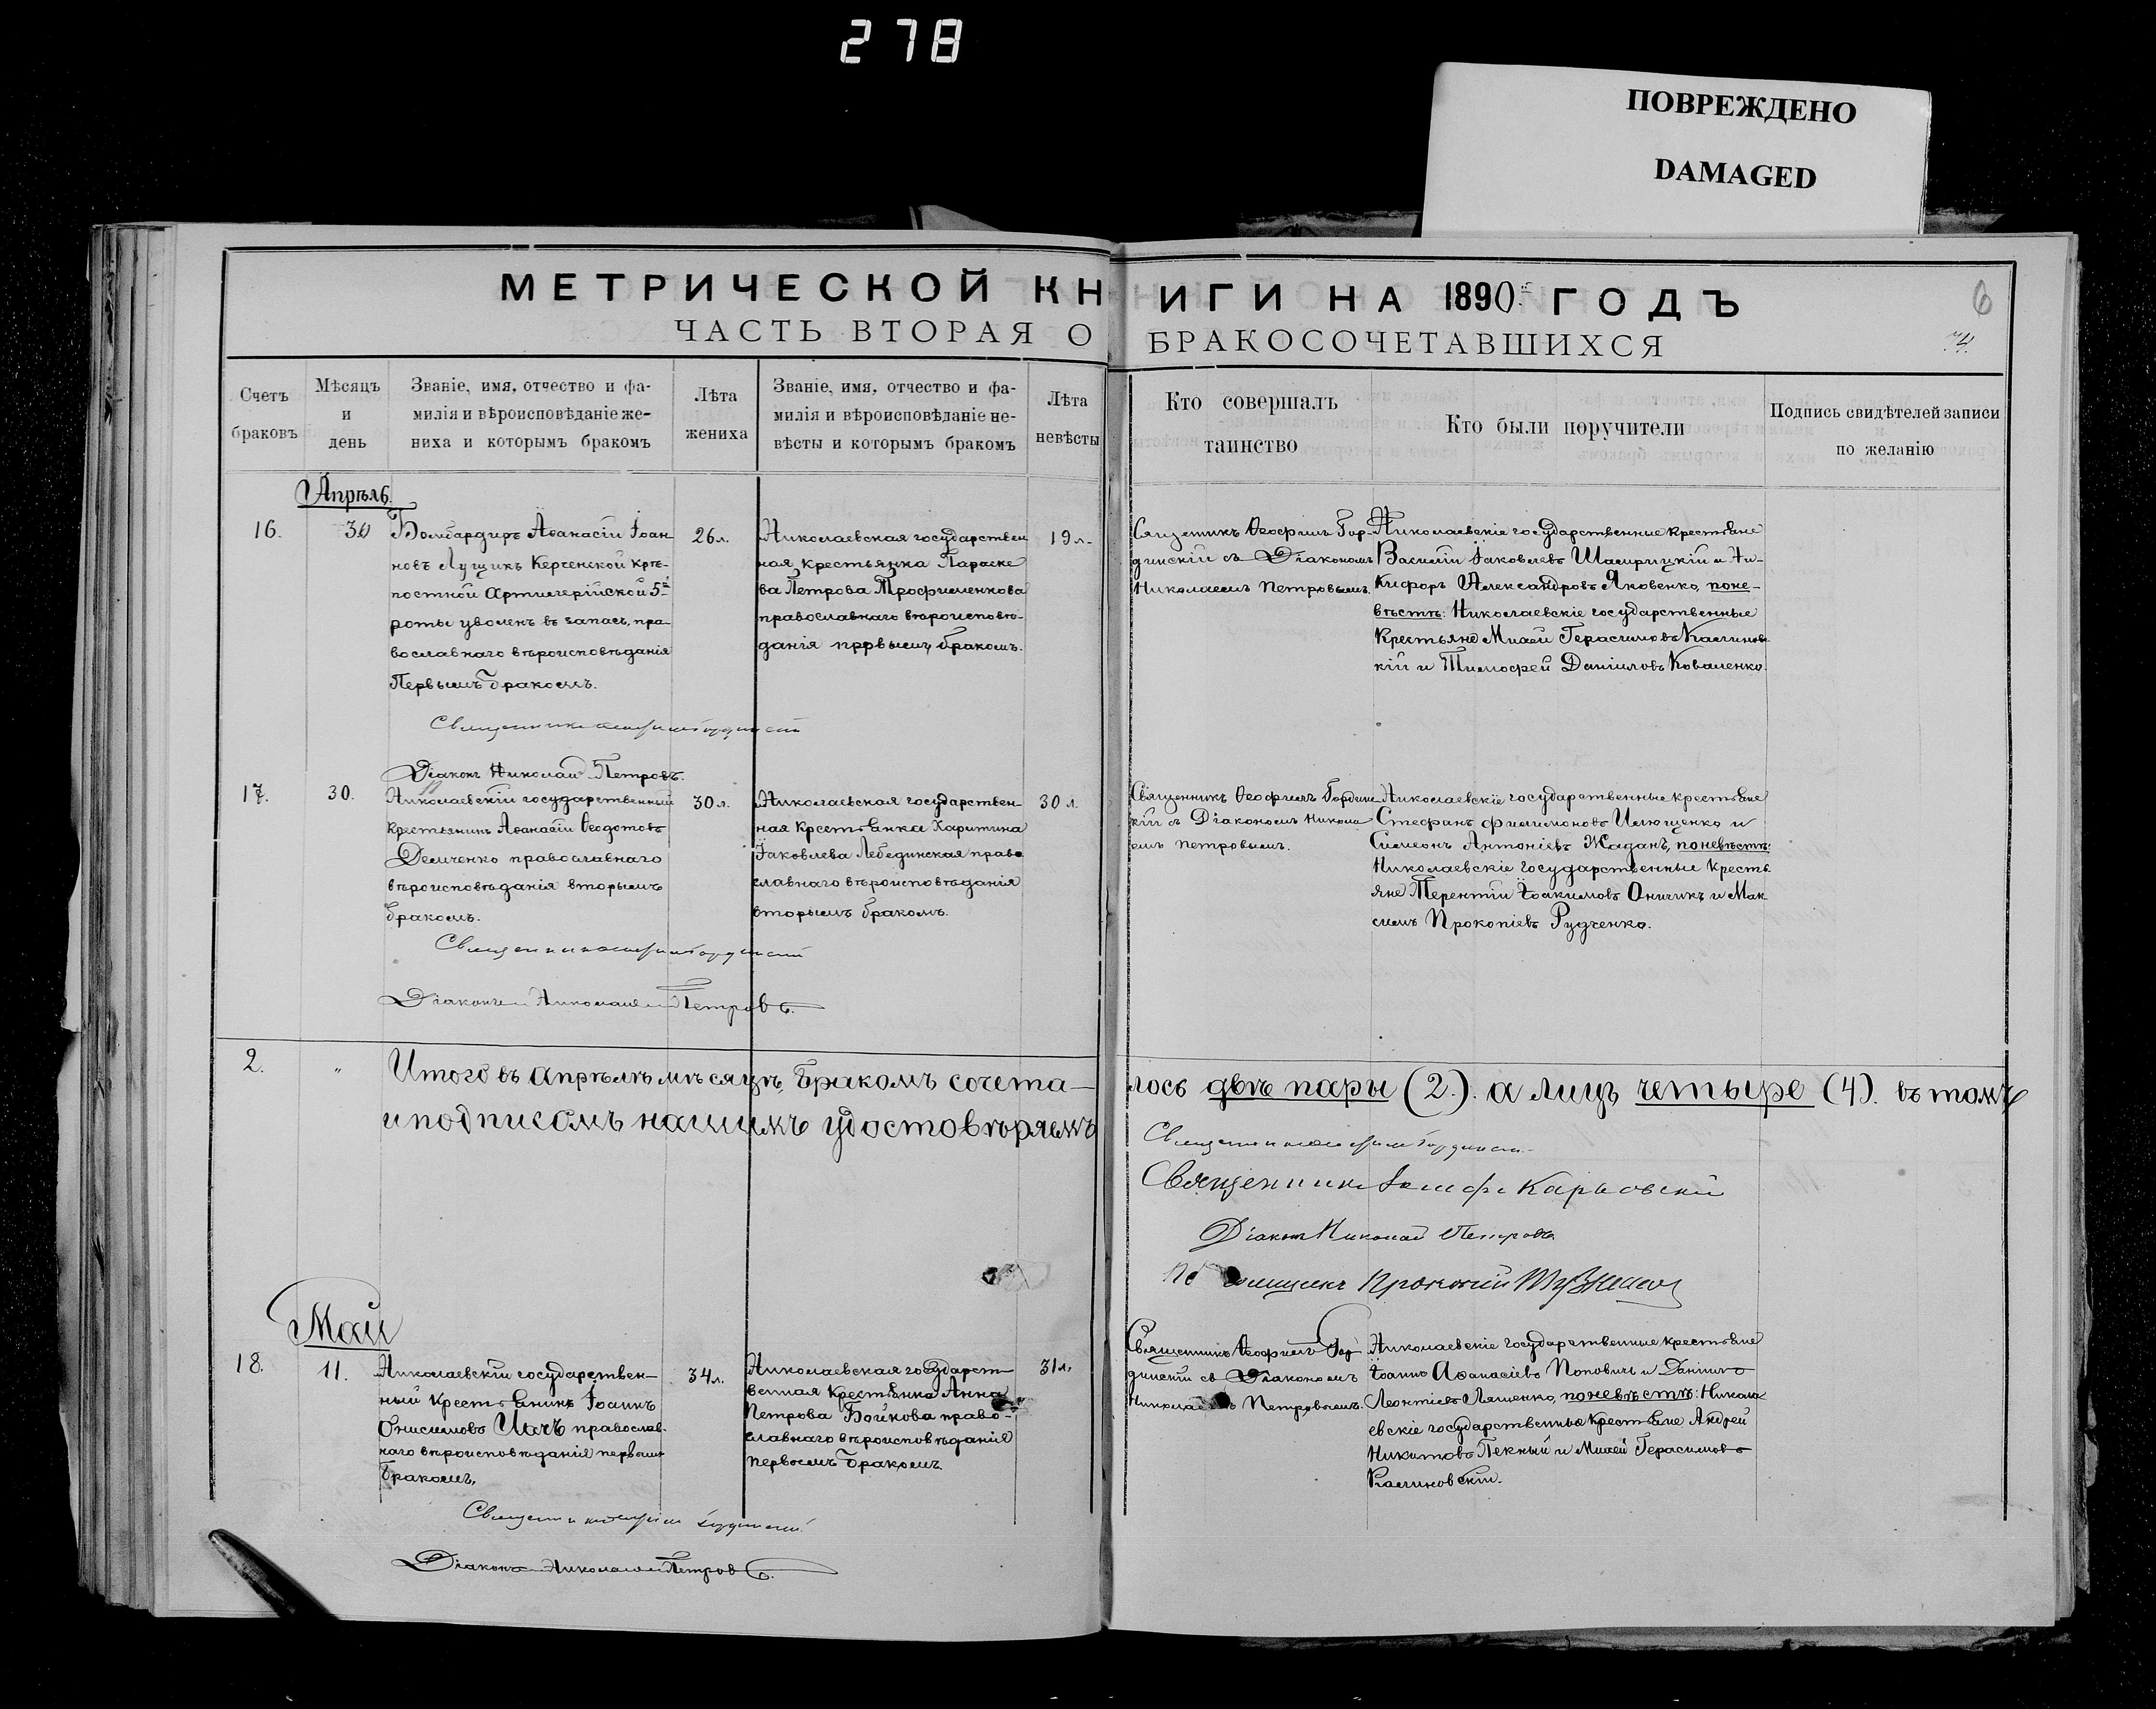 278
ПОВРЕЖДЕНО
DAMAGED
МЕТРИЧЕСКОЙ КНИГИ НА 1890. ГОДЪ
6
ЧАСТЬ ВТОРАЯ О БРАКОСОЧЕТАВШИХСЯ
Счетъ
браковъ
Мѣсяцъ
и
день
Званіе, имя, отчество и фа-
милія и вѣроисповѣданіе же-
ниха и которымъ бракомъ
Лѣта
жениха
Званіе, имя, отчество и фа-
милія и вѣроисповѣданіе не-
вѣсты и которымъ бракомъ
Лѣта
невѣсты
Кто совершалъ
таинство
Кто были поручители
Подпись свидѣтелей записи
по желанію
Апрѣль
16.
30
Бомбардиръ Аѳанасій Іоан-
новъ Лущикъ Керченской крѣ-
постной Артиллерійской 5й
роты уволенъ въ запасъ, пра-
вославнаго вѣроисповѣданія
Первымъ бракомъ.
26 л.
Николаевская государствен
ная крестьянка Параске
ва Петрова Трофименкова
православнаго вѣроисповѣ-
данія первымъ бракомъ.
19 л.
Священникъ Ѳеофилъ Гор-
динскій съ Діакономъ
Николаемъ Петровымъ.
Николаевскіе государственные крестьяне
Василій Іаковлевъ Шамрицкій и Ни-
кифоръ Александровъ Яковенко, по не-
вѣстѣ: Николаевскіе государственные
Крестьяне Михей Герасимовъ Калинов
кій и Тимофей Даніиловъ Коваленко.
Священникъ Ѳеофилъ Гординскій
Діаконъ Николай Петровъ.
17.
30.
Николаевскій государственный
крестьянинъ Аѳанасій Ѳеодотовъ
Демченко православнаго
вѣроисповѣданія вторымъ
бракомъ.
30 л.
Николаевская государствен-
ная крестьянка Харитина
Іаковлева Лебединская право
славнаго вѣроисповѣданія
вторымъ бракомъ.
30 л.
Священникъ Ѳеофилъ Гординс
кій съ Діакономъ Никола
емъ Петровымъ.
Николаевскіе государственные крестьяне
Стефанъ Филимоновъ Ильющенко и
Симеонъ Антоніевъ Жаданъ, по невѣстѣ:
Николаевскіе государственные кресть
яне Терентій Іоакимовъ Оничикъ и Мак
симъ Прокопіевъ Рудченко.
Священникъ Ѳеофилъ Гординскій
Діаконъ Николай Петровъ.
2.
"
Итого въ Апрѣлѣ мѣсяцѣ, бракомъ сочета-лось двѣ пары (2.). а лицъ четыре (4). въ томъ
и подписомъ нашимъ удостовѣряемъ
Священникъ Ѳеофилъ Гординскій
Священникъ Іосифъ
Діаконъ Николай Петровъ
Прокопій
Май
18.
11.
Николаевскій государствен-
ный крестьянинъ Іоаннъ
Онисимовъ Цачъ православ-
наго вѣроисповѣданія первымъ
бракомъ.
34 л.
Николаевская государст-
венная крестьянка Анна
Петрова Бойкова право-
славнаго вѣроисповѣданія
первымъ бракомъ
31 л.
Священникъ Ѳеофилъ Гор
динскій съ Діакономъ
Николаемъ Петровымъ.
Николаевскіе государственные крестьяне
Іоаннъ Аѳанасіевъ Поповичъ и Даніилъ
Леонтіевъ Ляшенко, по невѣстѣ: Никола
евскіе государственные крестьяне Андрей
Никитовъ Пекный и Михей Герасимовъ
Калиновскій.
Священникъ Ѳеофилъ Гординскій
Діаконъ Николай Петровъ.